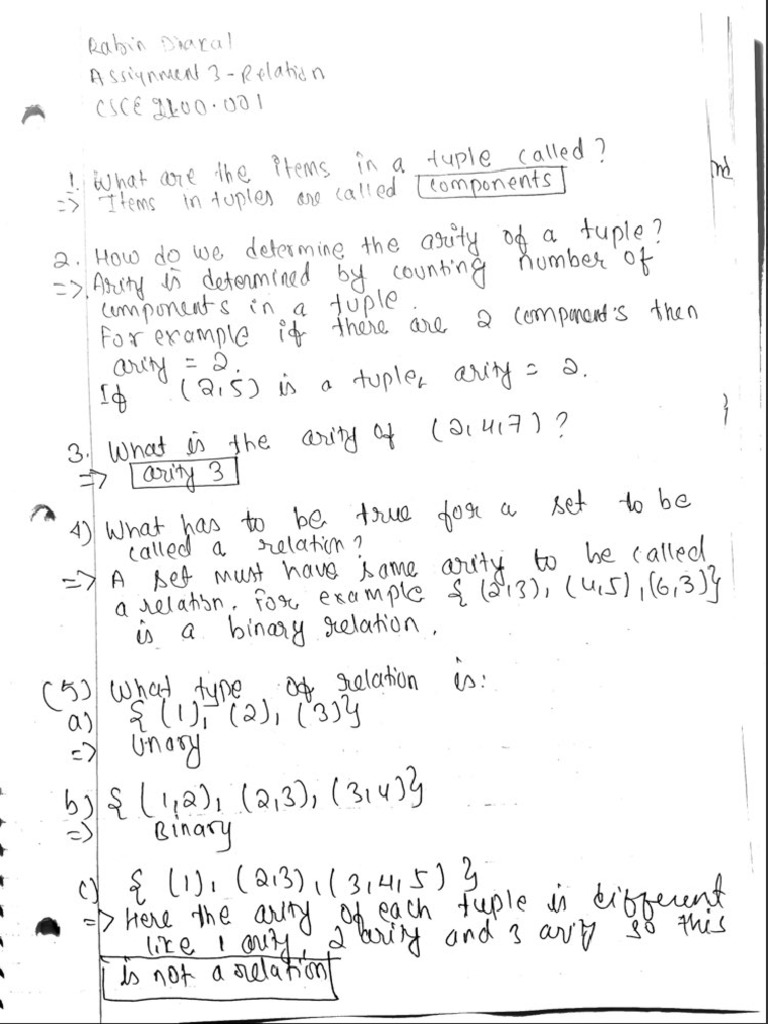 Rabin
Assignment 3 - Relation
CSCE 2100.001
1. What are the items in a tuple called?
=> Items in tuples are called components
2. How do we determine the arity of a tuple?
=> Arity is determined by counting number of
components in a tuple.
For example if there are 2 components then
arity = 2.
If (2,5) is a tuple, arity = 2.
3. What is the arity of (2,4,7)?
=> arity 3
4) What has to be true for a set to be
called a relation?
=> A set must have same arity to be called
a relation. For example {(2,3), (4,5), (6,3)}
is a binary relation.
(5) What type of relation is:
a) {(1), (2), (3)}
=> Unary
b) {(1,2), (2,3), (3,4)}
=> Binary
c) {(1), (2,3), (3,4,5)}
=> Here the arity of each tuple is different
like 1 arity, 2 arity and 3 arity so this
is not a relation